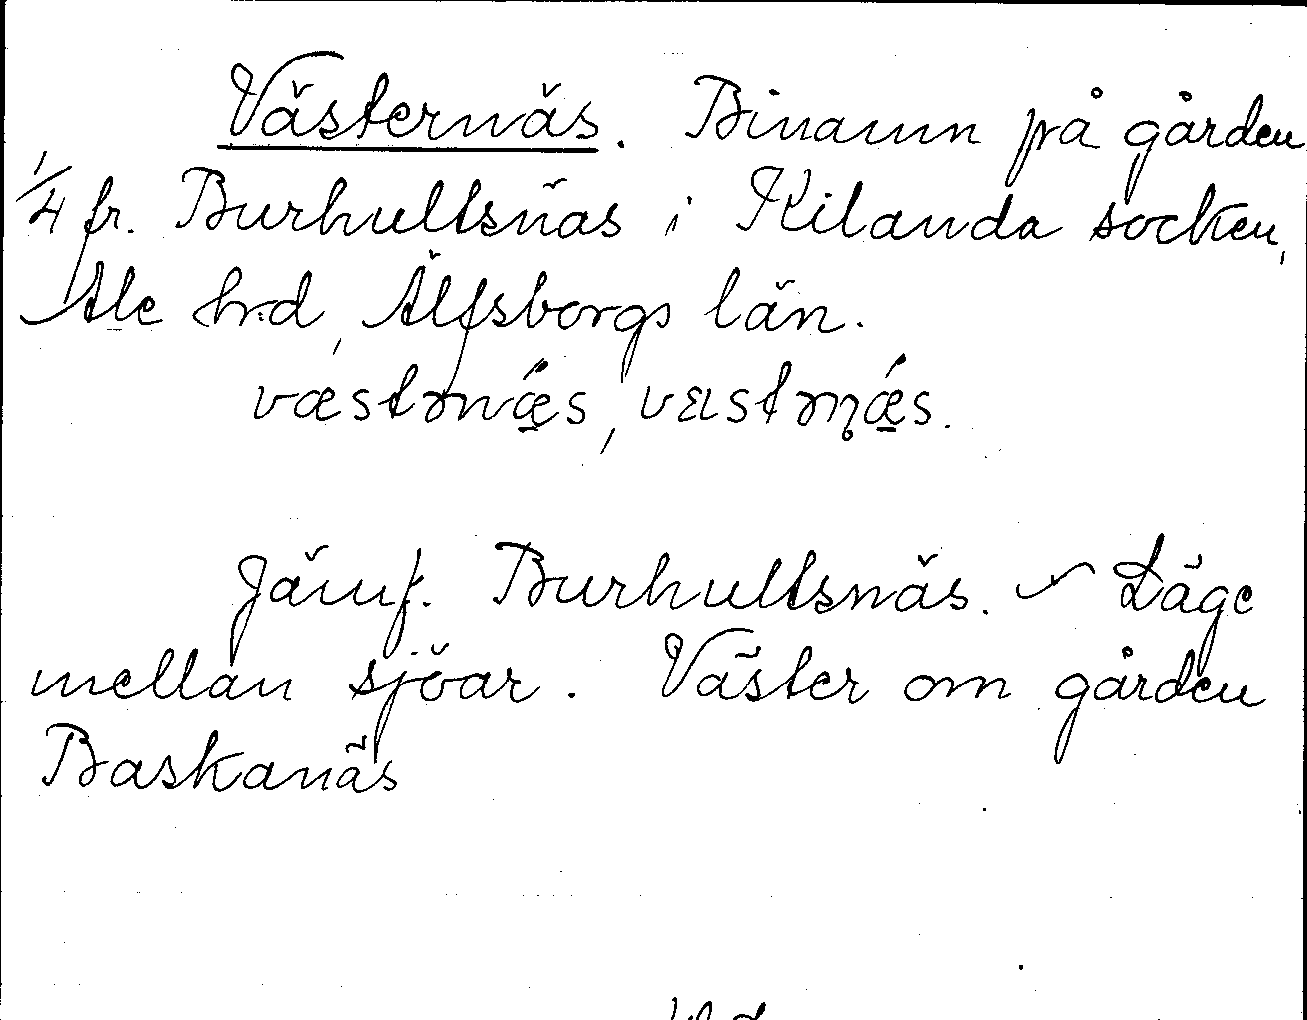 Västernäs. Binamn på gården
1/4 fr. Burhultsnäs i Kilanda socken,
Ale hrd, Älfsborgs län.
væstərnǽs,
Jämf. Burhultsnäs. Läge
mellan sjöar. Väster om gården
Baskanäs